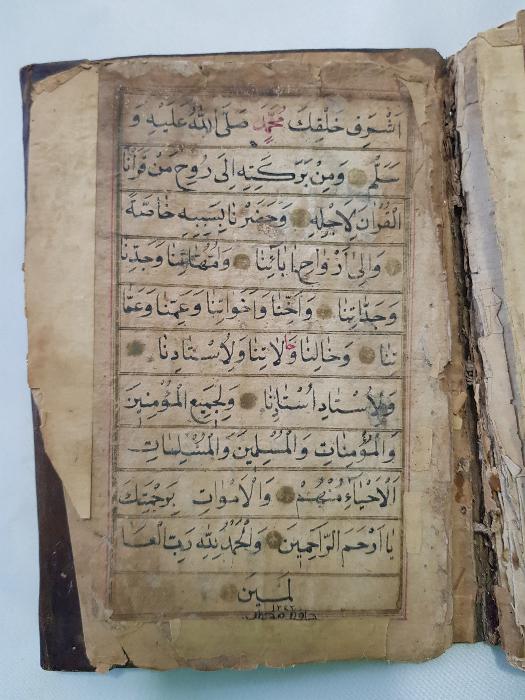 اَشْرَفِ خَلْقِكَ مُحَمَّدٍ صَلَّى اللهُ عَلَيْهِ وَ
سَلَّمَ وَمِنْ بَرَكَتِهِ اِلٰى رُوحِ مَنْ قَرَأْنَا
الْقُرْاٰنَ لِاَجْلِهِ وَحَضَرْنَا بِسَبَبِهِ خَاصَّةً
وَاِلٰى اَرْوَاحِ اٰبَائِنَا وَاُمَّهَاتِنَا وَجَدِّنَا
وَجَدَّاتِنَا وَاَخِنَا وَاَخَوَاتِنَا وَعَمِّنَا وَعَمَّا
تِنَا وَخَالِنَا وَخَالَاتِنَا وَلِاُسْتَادِنَا
وَلِاُسْتَادِ اُسْتَادِنَا وَلِجَمِيعِ الْمُؤْمِنِينَ
وَالْمُؤْمِنَاتِ وَالْمُسْلِمِينَ وَالْمُسْلِمَاتِ
اَلْاَحْيَاءِ مِنْهُمْ وَالْاَمْوَاتِ بِرَحْمَتِكَ
يَا اَرْحَمَ الرَّاحِمِينَ وَالْحَمْدُ لِلّٰهِ رَبِّ الْعَا
لَمِينَ